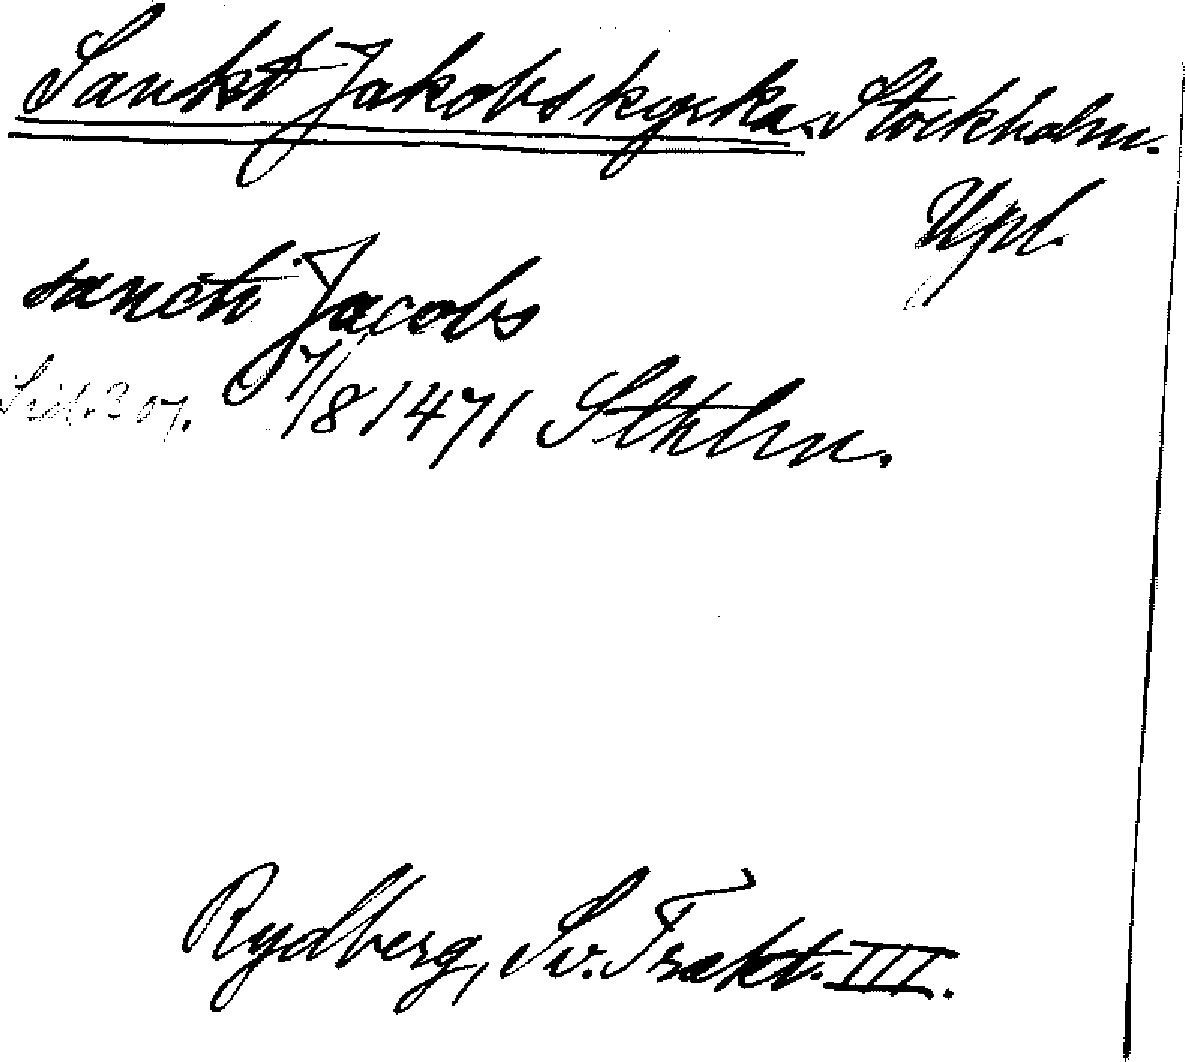 Sankt Jakobs kyrka. Stockholm.
Upl.
sancti Jacobs
Sid. 307. 7/8 1471 Sthlm.
Rydberg, Sv. Trakt. III.